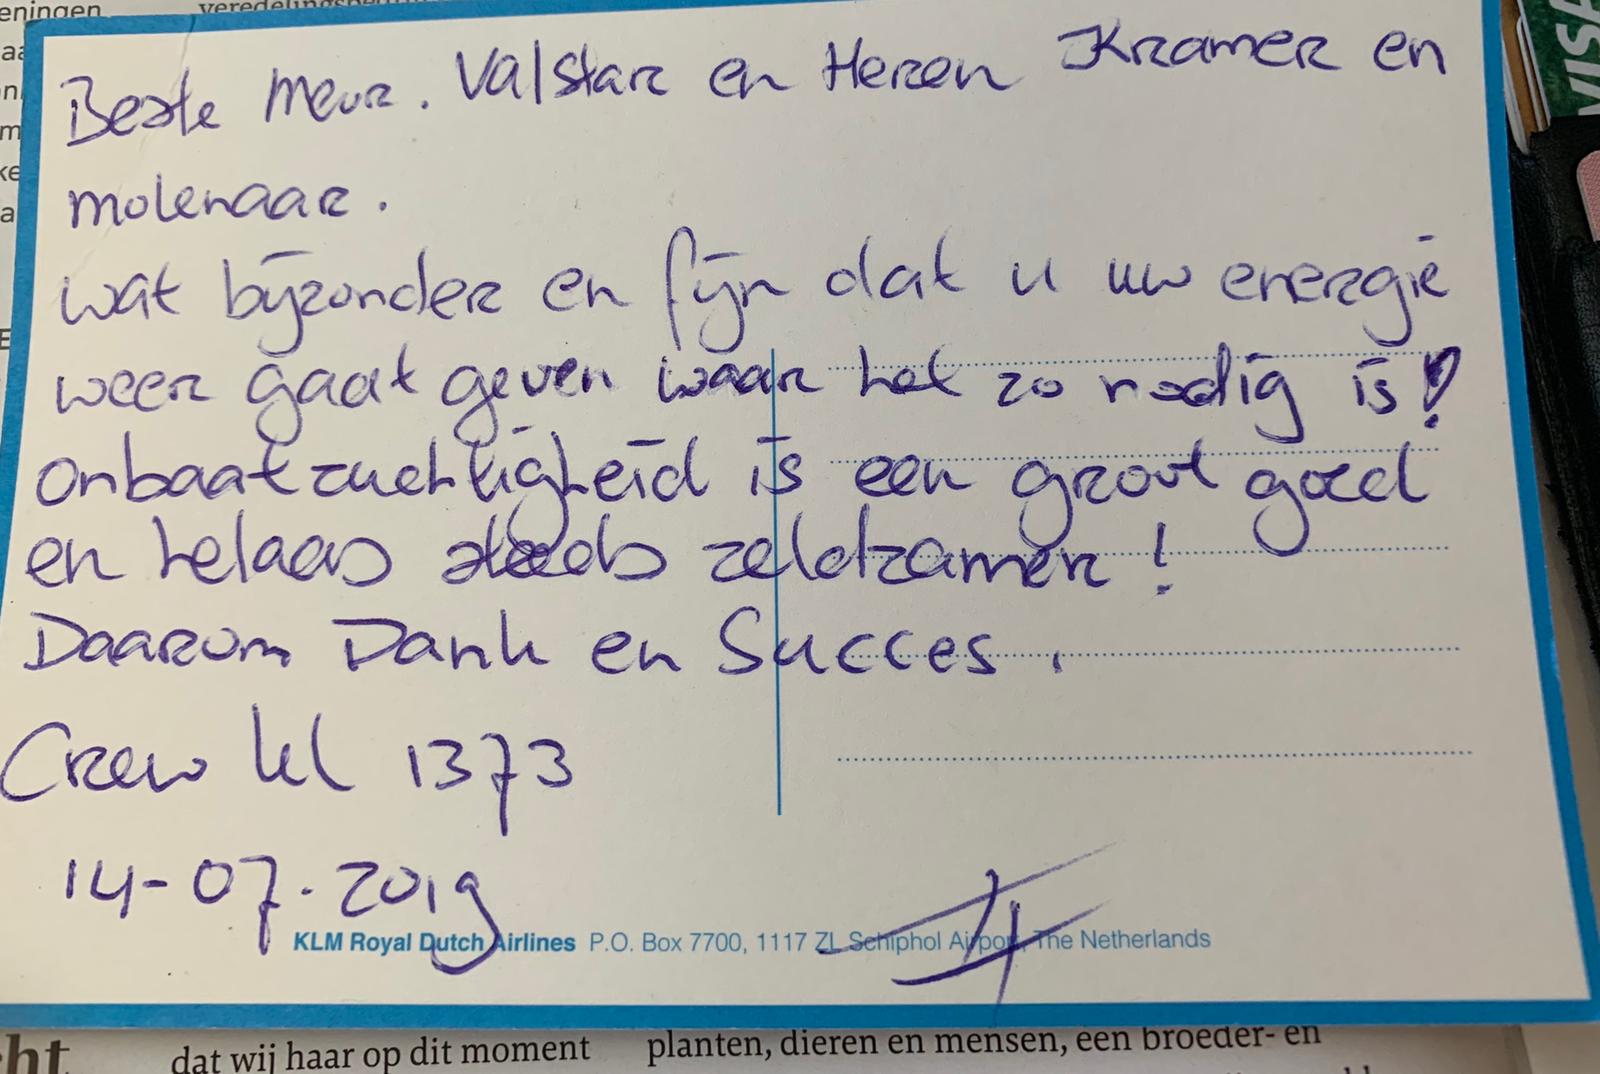 eningen
veredelingsbe
Beste Mevr. Valstar en Heren Kramer en
molenaar.
wat bijzonder en fijn dat u uw energie
weer gaat geven waar het zo nodig is!
Onbaatzuchtigheid is een groot goed
en helaas steeds zeldzamer!
Daarom Dank en Succes.
Crew kl 1373
14-07-2019
KLM Royal Dutch Airlines P.O. Box 7700, 1117 ZL Schiphol Airport, The Netherlands
VISA
cht
dat wij haar op dit moment
planten, dieren en mensen, een broeder- en